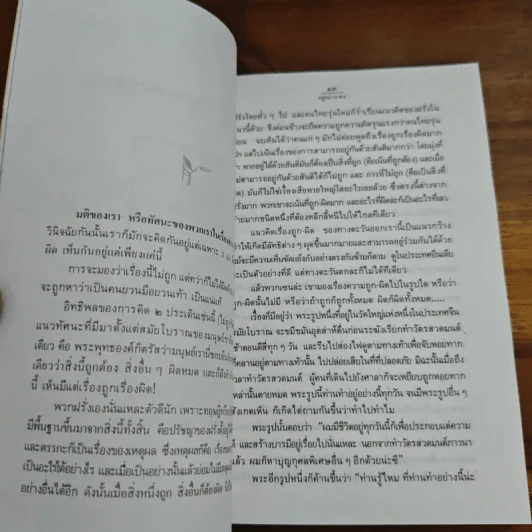 มติของเรา หรือทัศนะของพวกเราใน
วินิจฉัยกันนั้นเราก็มักจะคิดกันอยู่แต่เฉพาะ
ผิด เห็นกันอยู่แต่เพียงแค่นี้
การจะมองว่าเรื่องนี้ไม่ถูก แต่ทว่าก็ไม่
จะถูกหาว่าเป็นคนยวนมือยวนเท้า เป็นแน่แท้
อิทธิพลของการคิด ๒ ประเด็นเช่นนี้
แนวทัศนะที่มีมาตั้งแต่สมัยโบราณของมนุษย์
เดียว คือ พระพุทธองค์ก็ตรัสว่ามนุษย์เรานี้ชอบ
เดียวว่าสิ่งนี้ถูกต้อง สิ่งอื่น ๆ ผิดหมด และก็
นี้ เห็นมีแต่เรื่องถูกเรื่องผิด!
พวกฝรั่งเองนั่นแหละตัวดีนัก เพราะทฤษฎี
มีพื้นฐานขึ้นมาจากสิ่งนี้ทั้งสิ้น คือปรัชญาของฝรั่งตั้งอยู่
และตรรกะก็เป็นเรื่องของเหตุผล ซึ่งเหตุผลก็คือ เรื่อง
เป็นอะไรได้อย่างไร และเมื่อเป็นอย่างนั้นแล้วย่อมไม่มีเหตุ
อย่างอื่นได้อีก ดังนั้นเมื่อสิ่งหนึ่งถูก สิ่งอื่นก็ต้องผิด
๑๓
ฝรั่งไทยทั่ว ๆ ไป และคนไทยรุ่นใหม่ก็ร่ำเรียนแนวคิดของฝรั่งใน
แนวนี้ด้วย จึงค่อนข้างจะยึดความถูกความผิดรุนแรงกว่าคนไทยรุ่น
ก่อน จะเห็นได้ว่าคนแก่ ๆ มักไม่ค่อยพูดถึงเรื่องถูกเรื่องผิดมาก
นัก แต่ไปเน้นเรื่องของการสามารถอยู่กันด้วยสันติมากกว่า โดยมุ่งที่
หาก อยู่ด้วยสันติมันก็ต้องเป็นสิ่งที่ถูก (คือเน้นที่ถูกต้อง) และเมื่อ
ไม่สามารถอยู่กันด้วยสันติได้ก็ไม่ถูก และ การที่ไม่ถูก (คือเป็นสิ่งที่
ผิด) มันก็ไม่ใช่เรื่องเสียหายใหญ่โตอะไรเลยด้วย ซึ่งตรงนี้ต่างจาก
ฝรั่งมาก พวกเขาจะเน้นที่ถูก-ผิดมาก และอะไรที่ผิดละก็เป็นอะไรที่เลว
ร้ายมากชนิดหนึ่งที่ต้องหลีกลี้หนีไปให้ไกลทีเดียว
แนวคิดเรื่องถูก-ผิด ของทางตะวันออกเรานี้เป็นแนวกว้าง
ทำให้เกิดมีลัทธิต่าง ๆ ผุดขึ้นมากมายและสามารถอยู่ร่วมกันได้ด้วย
แม้จะมีความเห็นขัดแย้งกันอย่างตรงกันข้ามก็ตาม ดูในประเทศอินเดีย
จะเป็นตัวอย่างที่ดี แต่ทางตะวันตกละก็ไม่ได้ทีเดียว
แล้วพวกเซนล่ะ เขามองเรื่องความถูก-ผิดไปในรูปใด หรือว่า
ถูก-ผิดนั้นไม่มี หรือว่าถ้าถูกก็ถูกทั้งหมด ผิดก็ผิดทั้งหมด.....
เรื่องก็มีอยู่ว่า พระรูปหนึ่งที่อยู่ในวัดใหญ่แห่งหนึ่งในประเทศจีน
สมัยโบราณ จะขมีขมันอุตส่าห์ตื่นก่อนระฆังเรียกทำวัตรสวดมนต์
เช้าตอนตีสี่ทุก ๆ วัน และรีบไปส่องไฟดูตามทางเท้าเพื่อจับหอยทาก
ที่คลานอยู่ตามทางเท้านั้น ไปปล่อยเสียในที่ที่ปลอดภัย มิฉะนั้นเมื่อถึง
เวลาทำวัตรสวดมนต์ ผู้คนที่เดินไปยังศาลาก็จะเหยียบถูกหอยทาก
เหล่านั้นตายหมด พระรูปนี้ท่านทำอยู่อย่างนี้ทุกวัน จนมีพระรูปอื่น ๆ
สังเกตเห็น ก็เกิดไต่ถามกันขึ้นว่าทำไปทำไม
พระรูปนั้นตอบว่า “ผมมีชีวิตอยู่ทุกวันนี้ก็เพื่อประกอบแต่ความ
ดี และสร้างบารมีอยู่เรื่อยไปนั่นแหละ นอกจากทำวัตรสวดมนต์ภาวนา
แล้ว ผมก็หาบุญกุศลพิเศษอื่น ๆ อีกด้วยน่ะซี”
พระอีกรูปหนึ่งก็ค้านขึ้นว่า “ท่านรู้ไหม ที่ท่านทำอย่างนี้น่ะ